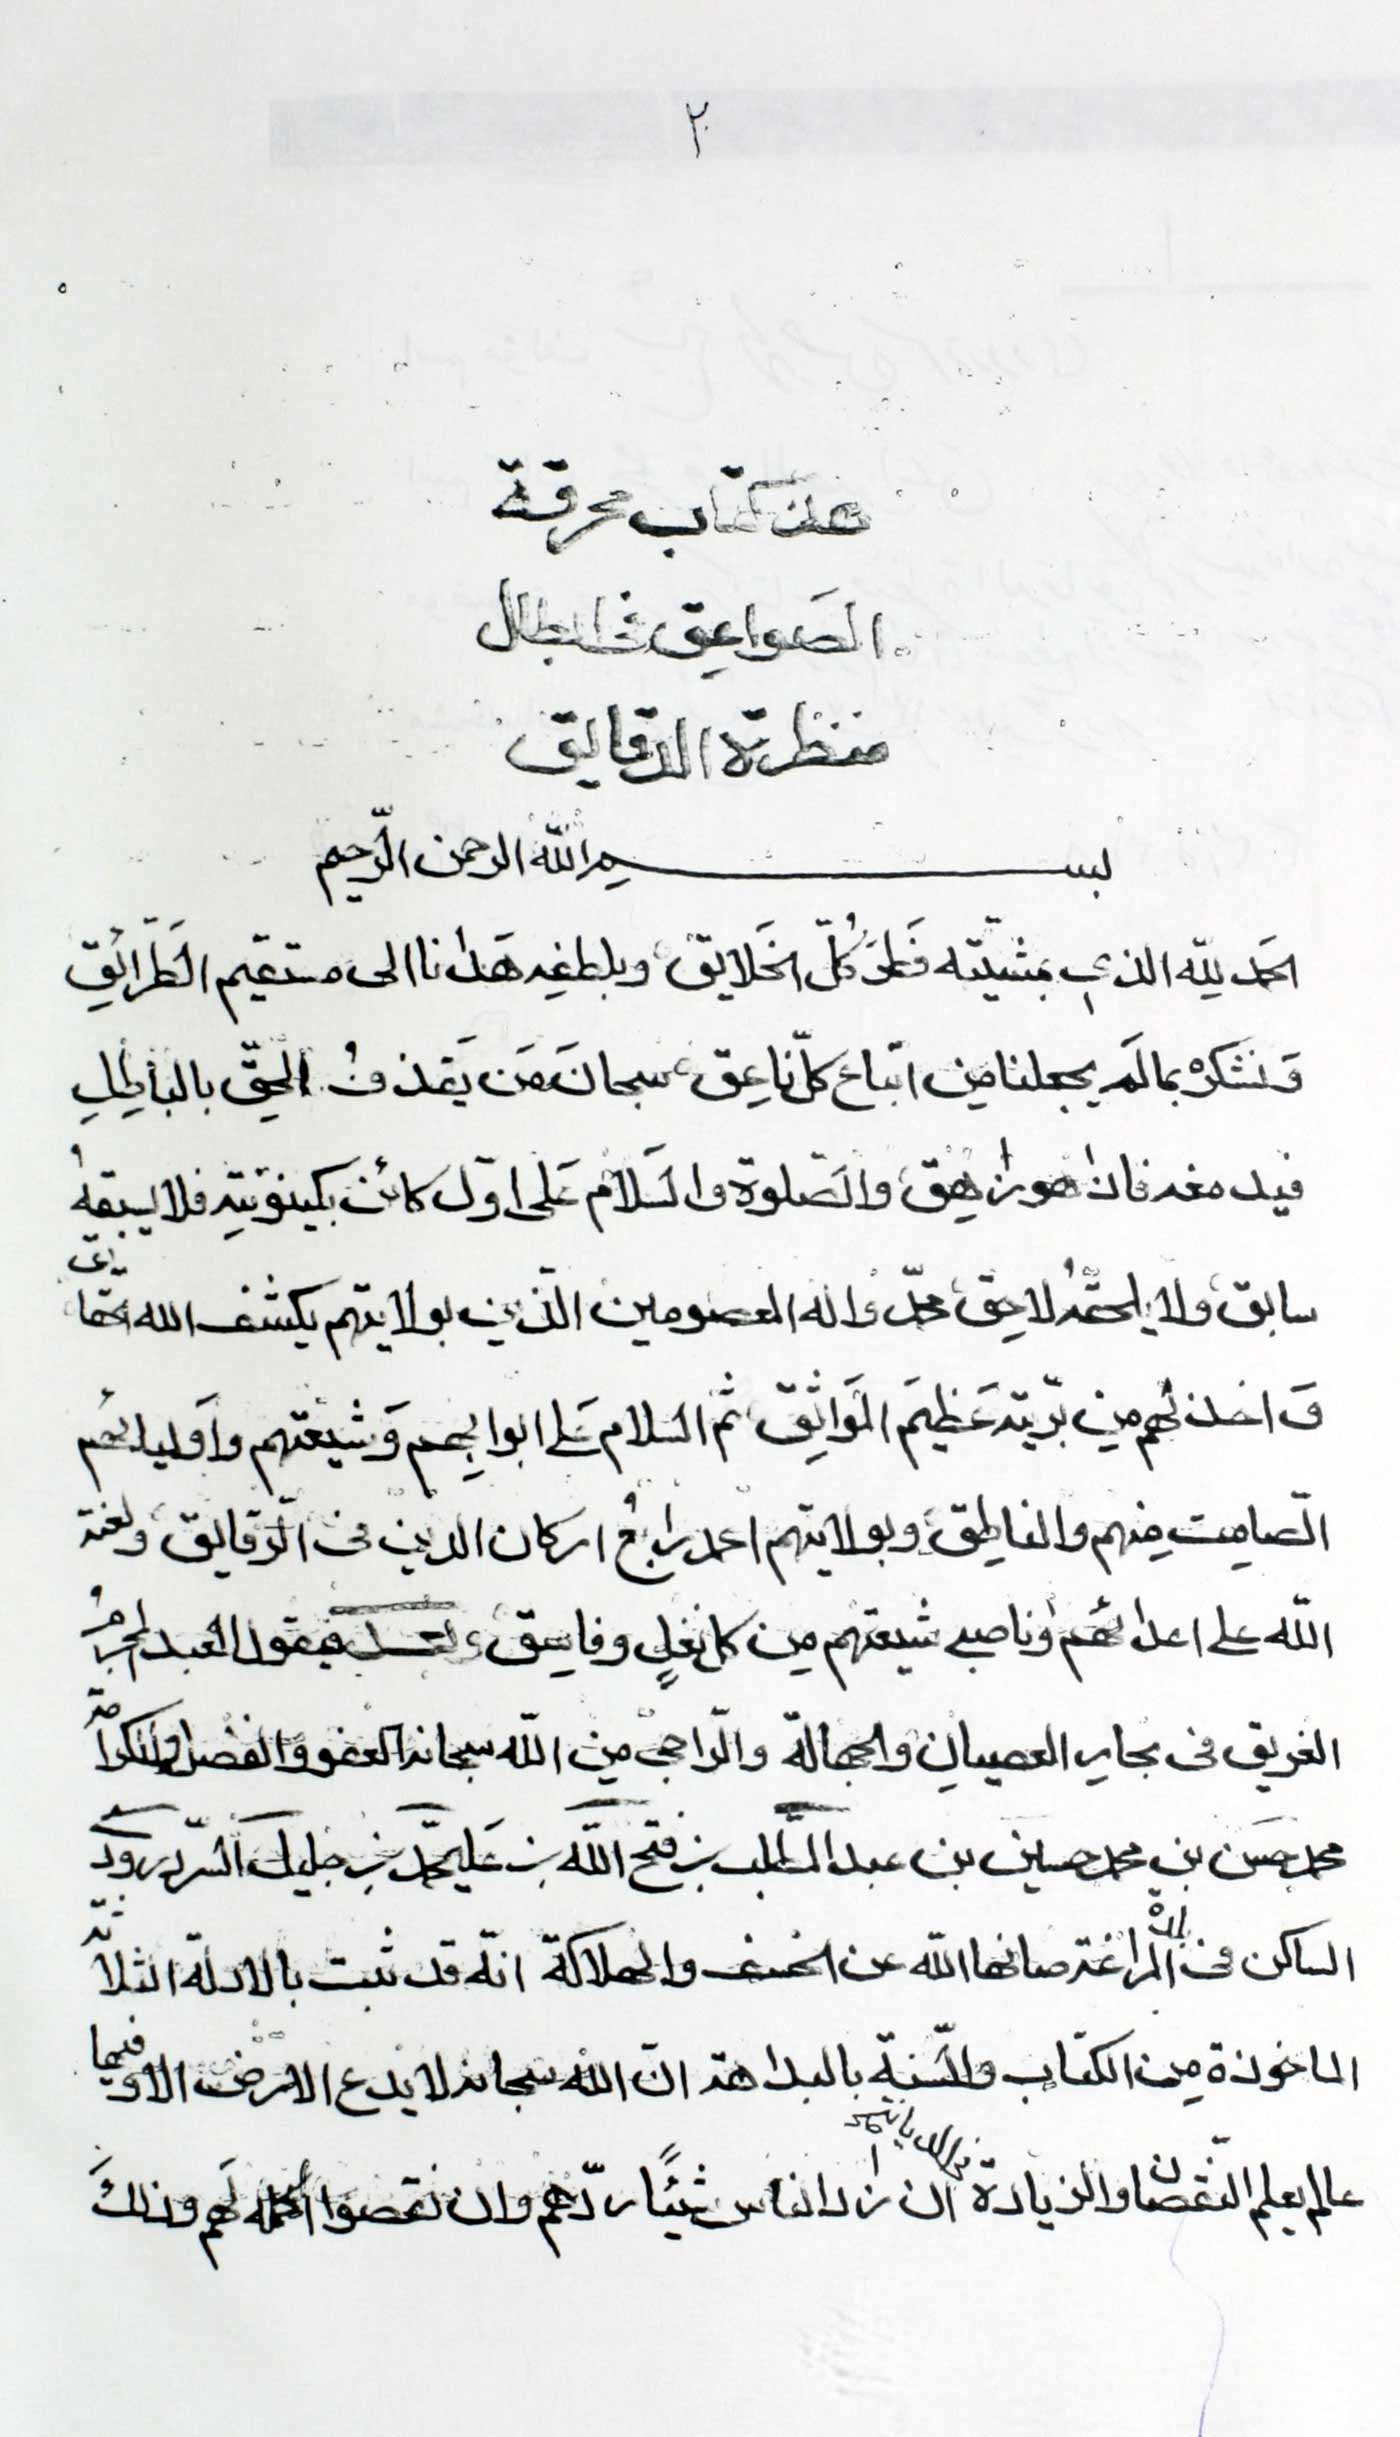 ٢
هذا كتاب محرقة
الصواعق في ابطال
منظرة الدقايق
بسم الله الرحمن الرّحيم
الحمد لله الذي بمشيّته فَطَرَ كُلّ الخَلايق وبلطفِه هَدانا الى مستقيم الطَرائِقِ
وَنشكره بما لَم يجعلنا مِن اتباع كلّ ناعِق سبحانَ مَن يَقذفُ الحقّ بالباطِلِ
فيدمغه فاذا هو زاهِق والصّلوة والسَلام عَلى اوّل كائن بكينونتِهِ فلا يسبقهُ
سابق ولا يلحقهُ لاحِق محمّد واله المعصومين الذّين بولايتهم يكشف الله الحقائق
وَ اخذ لهم مِن بريّته عَظيمَ المَواثِقِ ثم السلام عَلى ابوابِهم وَشيعتهم واَوليائهم
الصامِت مِنهم والناطِق وبولايتهم اعمد رابعُ اركان الدين فى الرّقايق ولعنة
الله على اعدائهم وناصبى شيعتهم مِن كل نغلٍ وفاسِق وبعد فيقول العبد المجرمُ
الغريق فى بحار العصيانِ والجهالة والرّاجى مِن الله سبحانه العفو والفضل والكرامة
محمد حسَن بن محمد حسين بن عبد المطّلب بن فتح الله بن عَلیمحمّد بن جليل السّردرودى
الساكن فى بلدة المراغة صانها الله عن الخسف والهلاكة انّه قد ثبت بالادلة الثلاثة
الماخوذة مِن الكتاب والسّنة بالبداهة انّ الله سبحانه لا يدع الارض الا وفيها
عالم يعلم النّقصان والزيادة ان زاد الناس شيئًا ردّهم وان نقصوا اكمله لهم وذلكَ